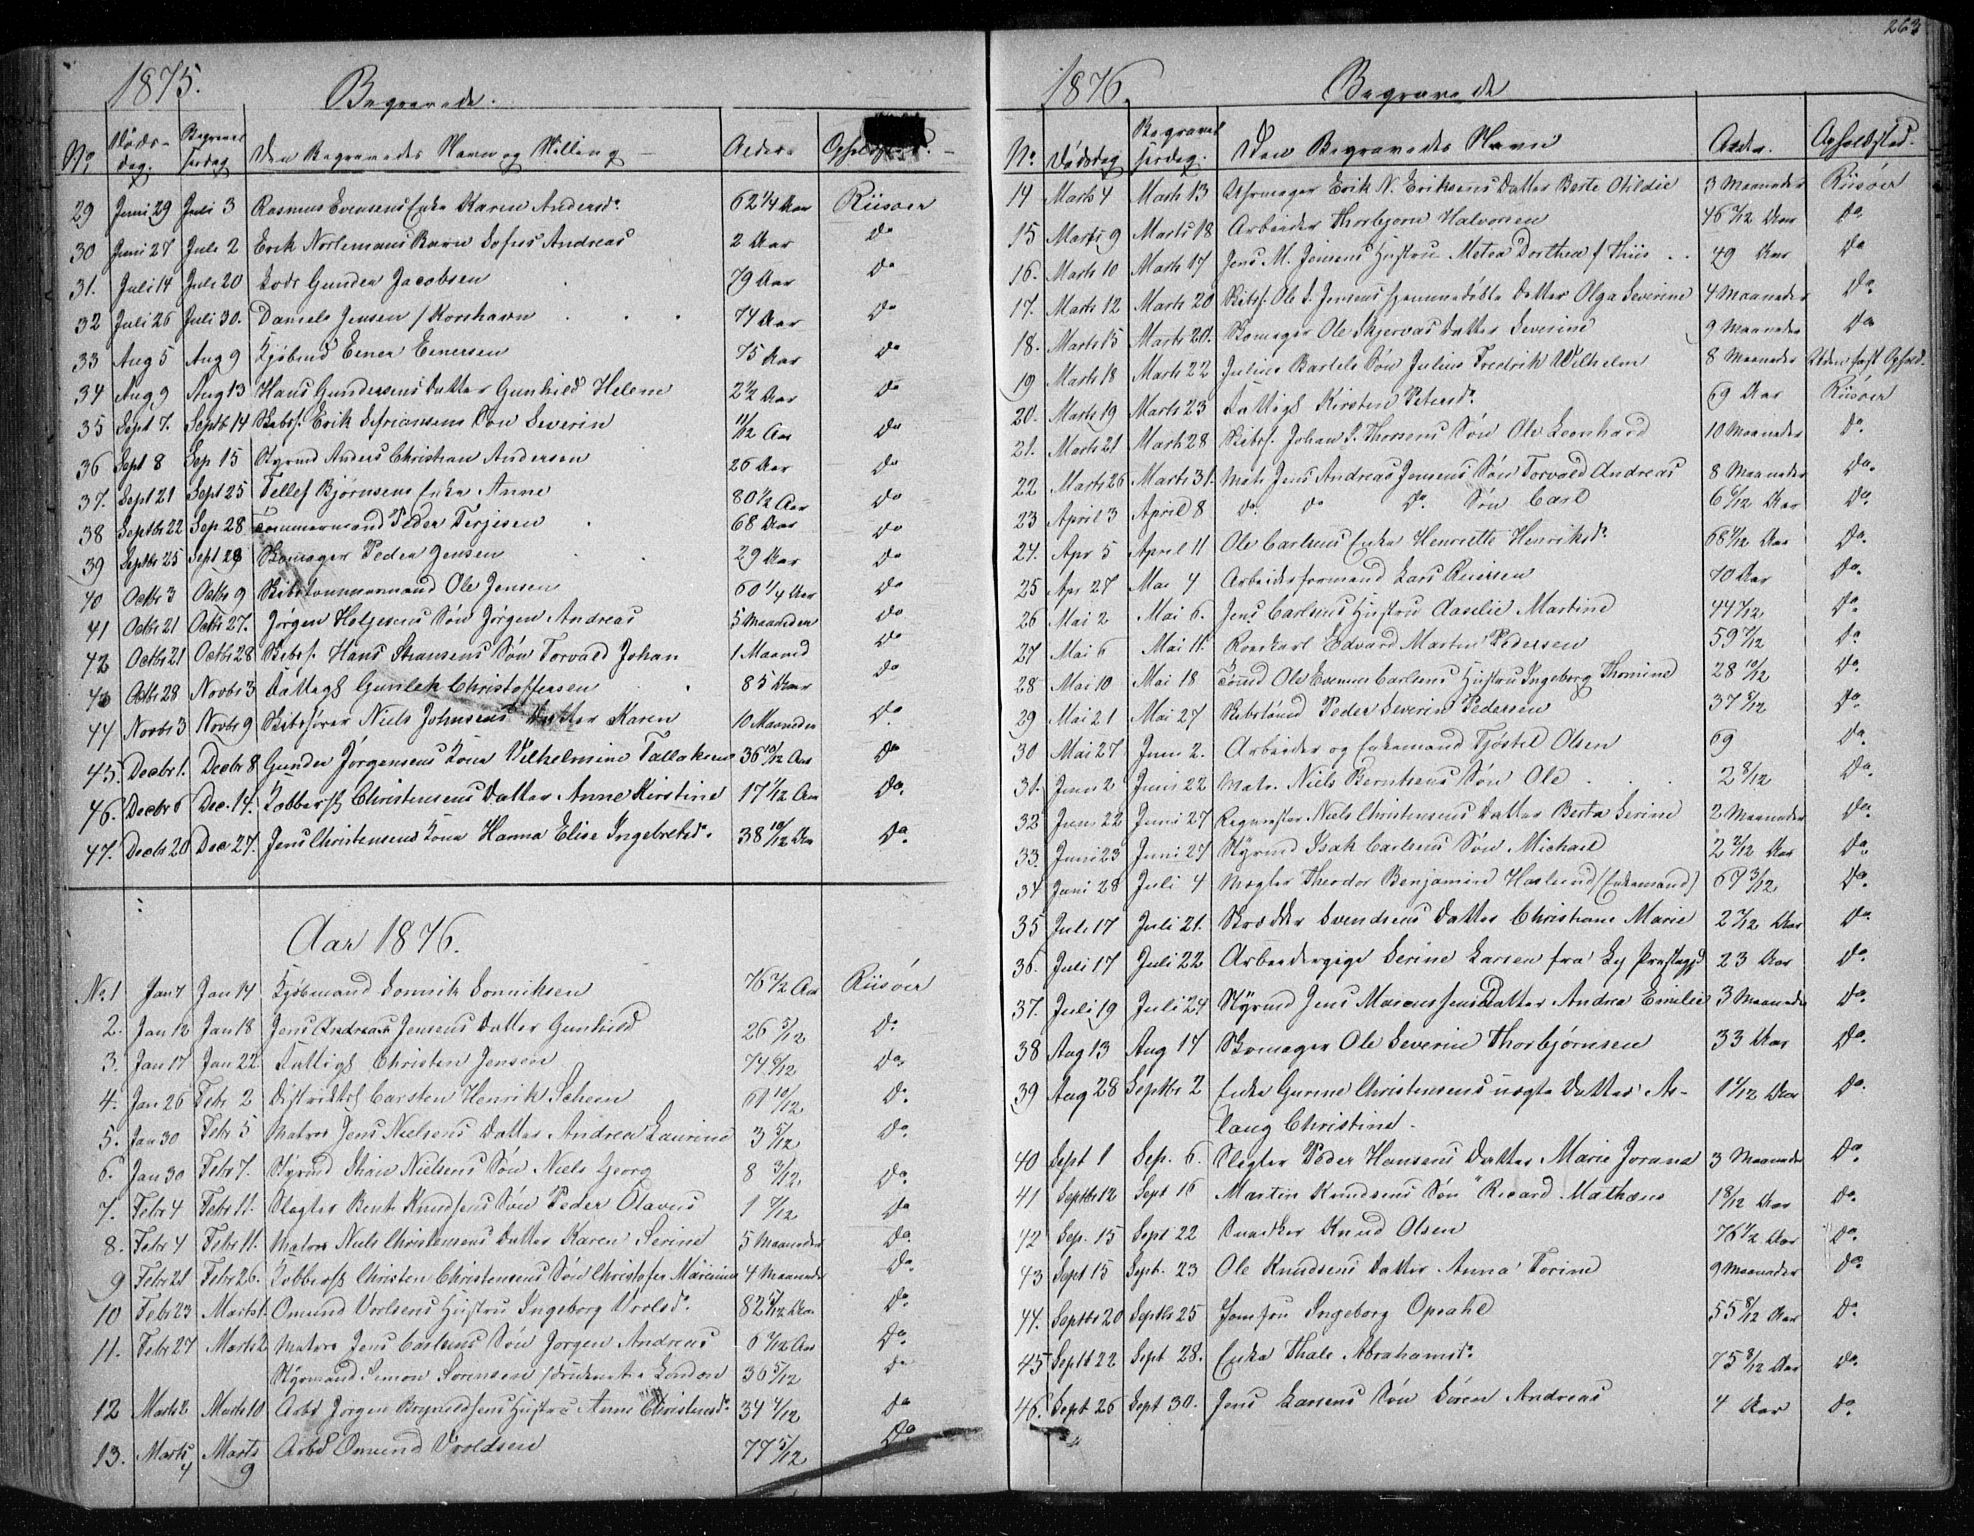 1875.
Begravede.
No
Døds-
dag.
Begravel
sesdag
Den Begravedes Navn og Stilling
Alder.
29 Juni 29 Juli 3 Rasmus Evensens Enke Karen Andersd. 62 1/4 Aar Riisøer
30 Juni 27 Juli 2 Erik Nortemans Barn Sofus Andreas 2 Aar do
31. Juli 14 Juli 20 Lods Gunder Jacobsen 79 Aar do
32 Juli 26 Juli 30. Daniels Jensen / Korshavn 74 Aar do
33 Aug 5 Aug 9 Kjøbmd Einer Einersen 75 Aar do
34 Aug 9 Aug 13 Hans Gundersens Datter Gunhild Helene 2 1/2 Aar do
35 Sept 7. Septb 14 Skibsf. Erik Sefriansens Søn Severin 11/12 Aar do
36 Sept 8 Sep 15 Styrmd Anders Christian Andersen 26 Aar do
37. Sept 21 Sept 25 Tellef Bjørnsens Enke Anne 80 1/2 Aar do
38 Septbr 22 Sep 28 Tømmermand Peder Terjesen 68 Aar do
39 Septbr 25 Sept 28 Skomager Peder Jensen 29 Aar do
40 Octbr 3 Octbr 9 Skibstømmermand Ole Jensen 60 1/4 Aar do
41 Octbr 21 Octbr 27. Jørgen Holjesens Søn Jørgen Andreas 5 Maaneder do
42 Octbr 21 Octbr 28 Skibsf. Hans Stransens Søn Torvald Johan 1 Maaned do
43 Octbr 28 Novbr 3 Fattigl Gunlek Christoffersen 85 Aar do
44 Novbr 3 Novbr 9 Skibsfører Niels Johnsens Datter Karen 10 Maaneder do
45. Decbr 1. Decbr 8 Gunder Jørgensens Kone Vilhelmine Tallaksen 36 10/12 Aar do
46. Decbr 6 Dec. 14. Kobbersl. Christensens Datter Anne Kirstine 17 1/12 Aar do.
47. Decbr 20 Dec 27. Jens Christensens Kone Hanna Elise Ingebretsd. 38 10/12 Aar do
Aar 1876.
No 1 Jan 7 Jan 14 Kjøbmand Sonnik Sonniksen 76 1/2 Aar Riisøer
2. Jan 12 Jan 18 Jens Andreas Jensens Datter Gunhild 26 5/12 do
3. Jan 17 Jan 22 Fattigl Christen Jensen 74 6/12 do
4. Jan 26 Febr 2 Distriktsl Carsten Henrik Scheen 61 10/12 do
5. Jan 30 Febr 5 Matros Jens Nielsens Datter Andrea Laurine 3 5/12 do
6. Jan 30 Febr 7. Styrmd Stian Nielsens Søn Niels Georg 8 3/12 do
7. Febr 4 Febr 11. Slagter Bent Knudsens Søn Peder Olaves 1 7/12 do
8. Febr 4 Febr 11. Matros Niels Christensens Datter Karen Serine 5 Maaneder do
9 Febr 21 Febr 26. Kobbersl Christen Christensens Søn Christofer Marinius 4 Maaneder do
10 Febr 23 Marts 1. Omund Vrolsens Hustru Ingeborg Vrolsd. 82 5/12 Aar do
11. Febr 27 Marts 2 Matros Jens Carlsens Søn Jørgen Andreas 6 7/12 Aar do
Styrmand Simon Sørensen /druknet i London 36 5/12 do
12 Marts 2 Marts 10 Arbd Jørgen Brynildsens Hustru Anne Christensd. 34 4/12 do
13. Marts 4 Marts 9 Arbd Omund Vroldsen 77 5/12 do
263
1876.
Begravede
No
Dødsdag
Begravel
sesdag.
Den Begravedes Navn
Alder.
Opholdsted.
14 Marts 4 Marts 13 Uhrmager Erik N. Eriksens Datter Berte Otildie 3 Maaneder Riisøer
15 Marts 9 Marts 18 Arbeider Thorbjørn Halvorsen 46 7/12 Aar do
16. Marts 10 Marts 17 Jens M. Jensens Hustru Metea Dorthea f Thiis 49 Aar do
17. Marts 12 Marts 20 Skibsf. Ole S. Jensens hjemmedøbte Datter Olga Severine 4 Maaneder do
18. Marts 15 Marts 20. Skomager Ole Skjervas Datter Severine 9 Maaneder do
19 Marts 18 Marts 22 Julius Bartels Søn Julius Fredrik Wilhelm 8 Maaneder Uden fast Ophold.
20. Marts 19 Marts 23 Fattigl Kirsten Petersd. 69 Aar Riisøer
21. Marts 21 Marts 28 Skibsf. Johan P. Thorsens Søn Ole Leonhard 10 Maaneder do
22 Marts 26 Marts 31. Matr Jens Andreas Jensens Søn Torvald Andreas 8 Maaneder do.
23 April 3 April 8 do do do Søn Carl 6 6/12 Aar do.
24. Apr 5 April 11 Ole Carlsens Enke Henriette Henriksd. 68 4/12 Aar do.
25 Apr 27 Mai 4 Arbeidsformand Lars Reiersen 70 Aar do.
26 Mai 2 Mai 6. Jens Carlsens Hustru Aaselie Martine 44 7/12 do.
27 Mai 6 Mai 11. Roerkarl Edvard Martin Pedersen 59 7/12 do
28 Mai 10 Mai 18 Tømd Ole Evenus Carlsens Hustru Ingeborg Thomine 28 10/12 do.
29 Mai 21 Mai 27 Skibstømd Peder Severin Pedersen 37 9/12 do.
30 Mai 27 Juni 2. Arbeider og Enkemand Tjøstel Olsen 69 do.
31. Juni 2 Juni 22 Matr. Niels Berntsens Søn Ole 2 8/12 do.
32 Juni 22 Juni 27 Niels Christensens Datter Berta Serine 2 Maaneder do.
33. Juni 23 Juni 27 Styrmd Isak Carlsens Søn Michael 2 2/12 Aar do.
34 Juni 28 Juli 4 Mægler Theodor Benjamin Haslund (Enkemand) 67 3/12 do.
35 Juli 17 Juli 21. Skrædder Svendsens Datter Christiane Marie 2 7/12 Aar do.
36. Juli 17 Juli 22 Arbeiderpige Serine Larsen fra Ly Præstegjd 23 Aar do.
37. Juli 19 Juli 24 Styrmd Jens Marcussens Datter Andrea Emilie 3 Maaneder do.
38 Aug 13 Aug 17 Skomager Ole Severin Thorbjørnsen 33 Aar do.
39 Aug 28 Septbr 2 Enke Gurine Christensens uægte Datter As-
laug Christine. 1 4/12 Aar do.
40 Sept 1 Sep. 6. Slagter Peder Hansens Datter Marie Jorana 3 Maaneder do.
41 Septbr 12 Sept 16 Martin Knudsens Søn Ricard Mathæus 1 8/12 Aar do.
42 Sep. 15 Sept 22 Snedker Knud Olsen 76 1/2 Aar do.
43 Sept 15 Sept. 23 Ole Knudsens Datter Anna Torine 9 Maaneder do.
44. Septbr 20 Septbr 25 Jomfru Ingeborg Opsahl 55 8/12 Aar do.
45 Septb 22 Sept 28. Enke Thale Abrahamsd. 75 8/12 Aar do.
46. Sept 26 Sept 30. Jens Larsens Søn Søren Andreas 4 Aar do.